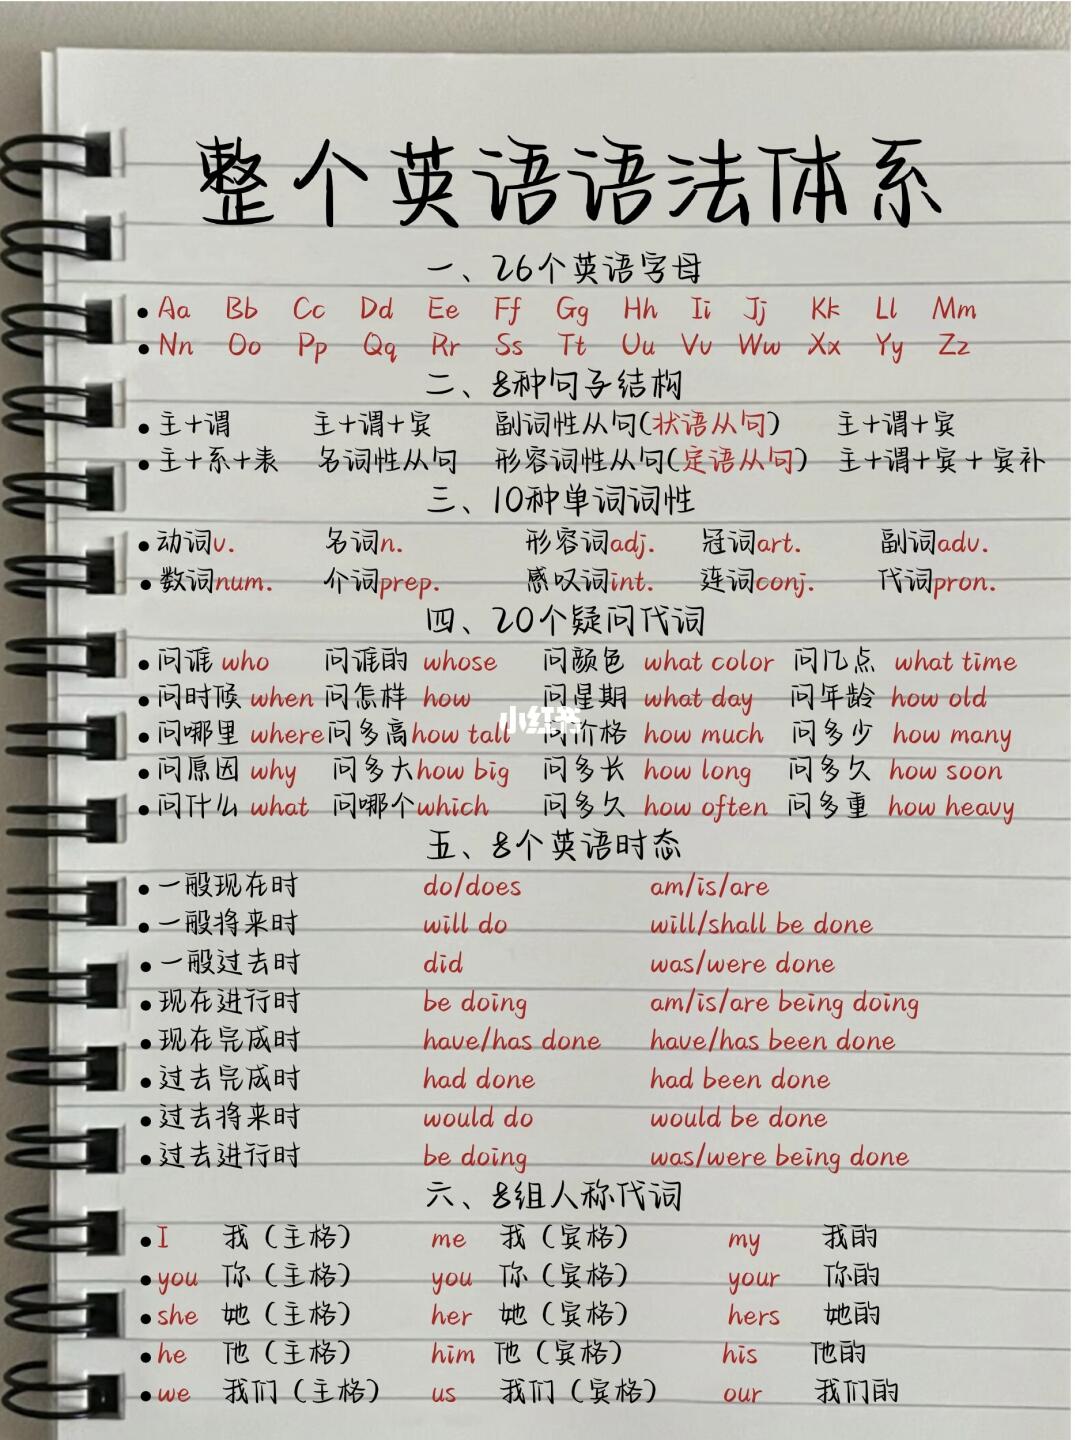 整个英语语法体系
一、26个英语字母
• Aa Bb Cc Dd Ee Ff Gg Hh Ii Jj Kk Ll Mm
• Nn Oo Pp Qq Rr Ss Tt Uu Vv Ww Xx Yy Zz
二、8种句子结构
• 主+谓 主+谓+宾 副词性从句(状语从句) 主+谓+宾
• 主+系+表 名词性从句 形容词性从句(定语从句) 主+谓+宾+宾补
三、10种单词词性
• 动词v. 名词n. 形容词adj. 冠词art. 副词adv.
• 数词num. 介词prep. 感叹词int. 连词conj. 代词pron.
四、20个疑问代词
• 问谁 who 问谁的 whose 问颜色 what color 问几点 what time
• 问时候 when 问怎样 how 问星期 what day 问年龄 how old
小红书
• 问哪里 where 问多高how tall 问价格 how much 问多少 how many
• 问原因 why 问多大how big 问多长 how long 问多久 how soon
• 问什么 what 问哪个which 问多久 how often 问多重 how heavy
五、8个英语时态
• 一般现在时 do/does am/is/are
• 一般将来时 will do will/shall be done
• 一般过去时 did was/were done
• 现在进行时 be doing am/is/are being doing
• 现在完成时 have/has done have/has been done
• 过去完成时 had done had been done
• 过去将来时 would do would be done
• 过去进行时 be doing was/were being done
六、8组人称代词
• I 我（主格） me 我（宾格） my 我的
• you 你（主格） you 你（宾格） your 你的
• she 她（主格） her 她（宾格） hers 她的
• he 他（主格） him 他（宾格） his 他的
• we 我们（主格） us 我们（宾格） our 我们的